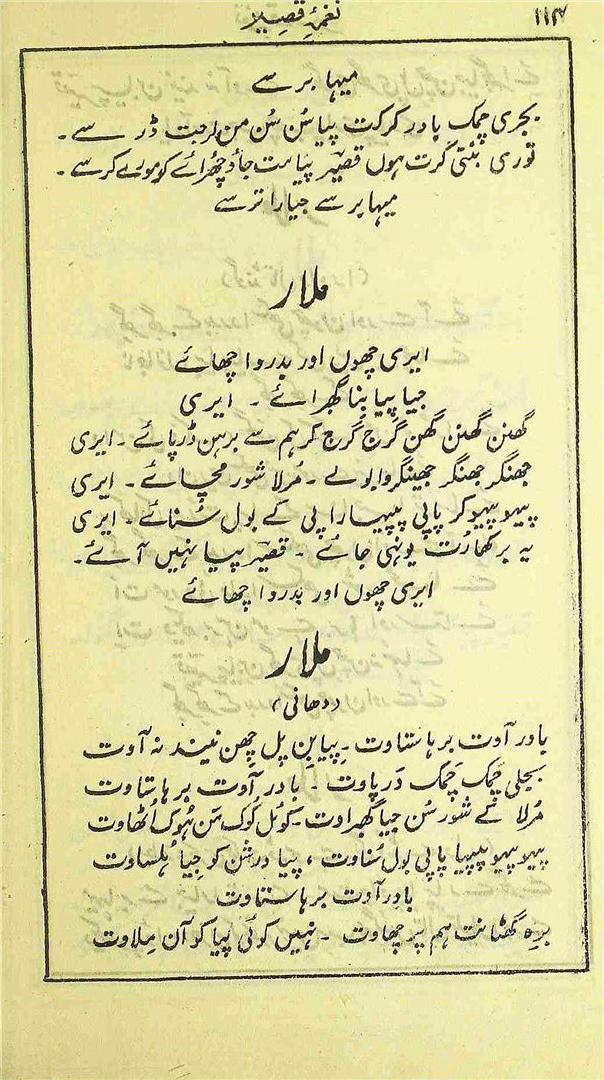 ۱۱۴
نغمۂ قصیر
میہا برسے
بجری چمک بادر کرکت پیا سُن سُن من لرجت ڈر سے ۔
توری بنتی کرت ہوں قصیرؔ پیا مت جاؤ چھڑائے کو مورے کر سے ۔
میہا برسے جیارا ترسے
ملار
ایری چھوں اور بدروا چھائے
جیا پیا بِنا گھبرائے ۔ ایری
گھنن گھنن گھن گرج گرج کر ہم سے برہن ڈرپائے ۔ ایری
جھنگر جھنگر جھینگروا بولے ۔ مُرلا شور مچائے ۔ ایری
پیہو پیہو کر پاپی پپیہارا پی کے بول سُنائے ۔ ایری
یہ برکھا رُت یونہی جائے ۔ قصیرؔ پیا نہیں آئے ۔
ایری چھوں اور بدروا چھائے
ملار
(دھانی)
بادر آوت برہا ستاوت ۔ پیا بن پل چھن نیند نہ آوت
بجلی چمک چمک ڈرپاوت ۔ بادر آوت برہا ستاوت
مُرلا کے شور سُن جیا گھبراوت ۔ کوئل کوک مَن ہُوک اُٹھاوت
پیہو پیہو پپیہا پاپی بول سُناوت ، پیا درشن کو جیا ہُلساوت
بادر آوت برہا ستاوت
برہ گھٹا نت ہم پر چھاوت ۔ نہیں کوئی پیا کو آن مِلاوت